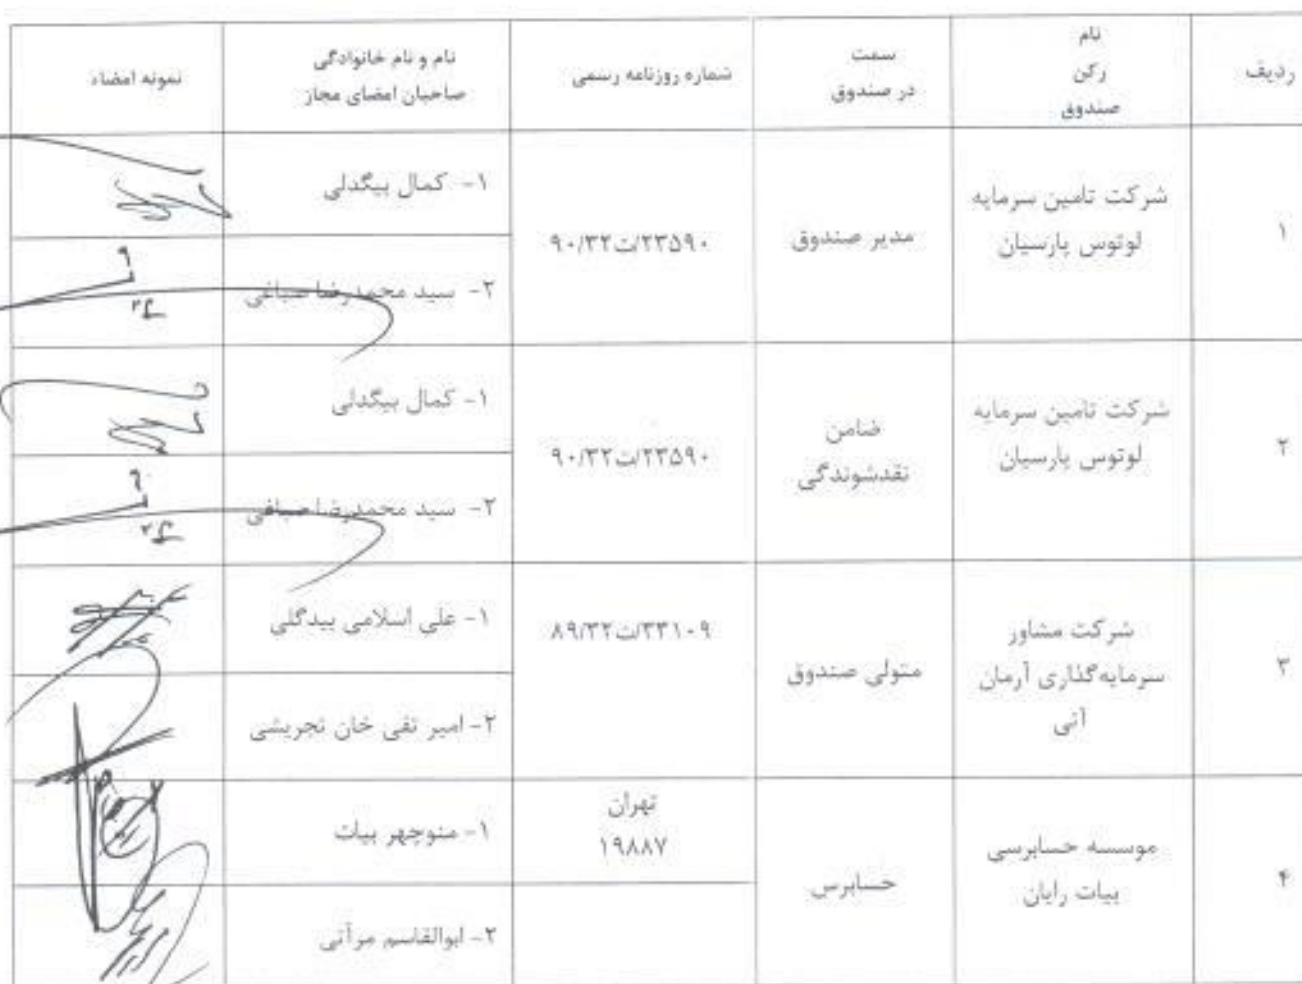 ردیف
نام
رکن
صندوق
سمت
در صندوق
شماره روزنامه رسمی
نام و نام خانوادگی
صاحبان امضای مجاز
نمونه امضاء
۱
شرکت تامین سرمایه
لوتوس پارسیان
مدیر صندوق
۲۳۵۹۰/ت۹۰/۳۲
۱- کمال بیگدلی
۲- سید محمدرضا صباغی
۲
شرکت تامین سرمایه
لوتوس پارسیان
ضامن
نقدشوندگی
۲۳۵۹۰/ت۹۰/۳۲
۱- کمال بیگدلی
۲- سید محمدرضا صباغی
۳
شرکت مشاور
سرمایه‌گذاری آرمان
آتی
متولی صندوق
۳۳۱۰۹/ت۸۹/۳۲
۱- علی اسلامی بیدگلی
۲- امیر تقی خان تجریشی
۴
موسسه حسابرسی
بیات رایان
حسابرس
تهران
۱۹۸۸۷
۱- منوچهر بیات
۲- ابوالقاسم مرآتی